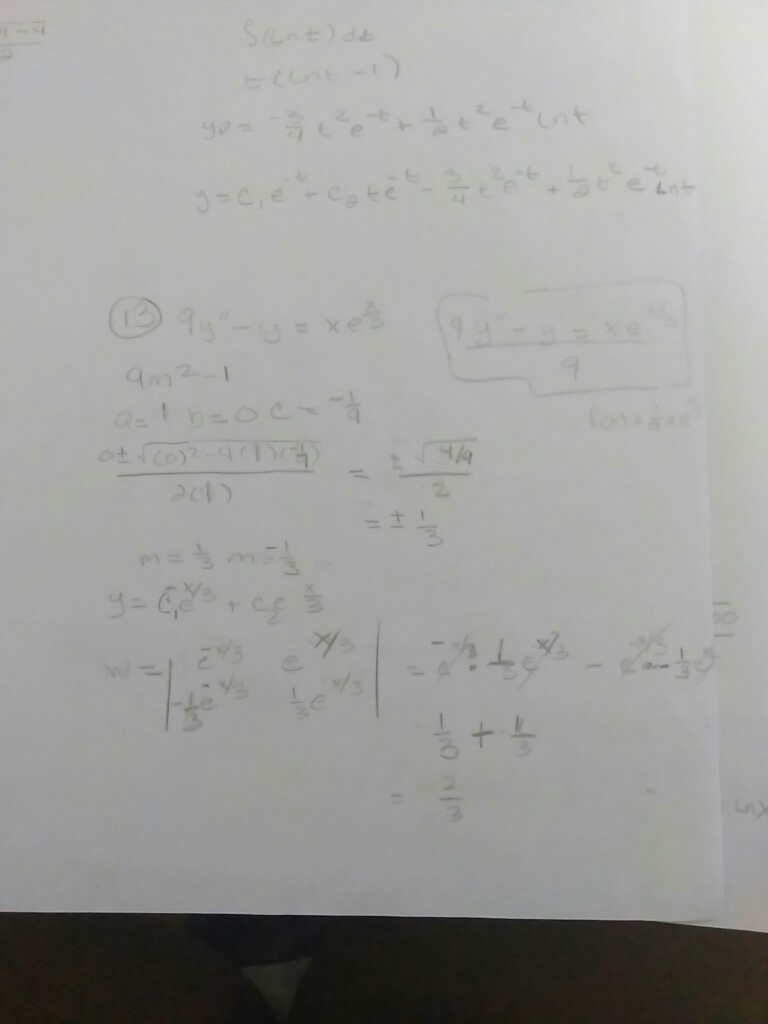 ∫(Lnt)dt
t(Lnt-1)
yp = -3/4 t²e^-t + 1/2 t²e^-t Lnt
y = C₁e^-t + C₂te^-t - 3/4 t²e^-t + 1/2 t²e^-t Lnt
13 9y'' - y = xe^x/3
9y'' - y = xe^x/3
9
9m² - 1
a = 1 b = 0 c = -1/9
0 ± √(0)² - 4(1)(-1/9) / 2(1) = ± √4/9 / 2
= ± 1/3
m = 1/3 m = -1/3
y = C₁e^-x/3 + C₂e^x/3
W = | e^-x/3 e^x/3 | = e^-x/3 · 1/3 e^x/3 - e^-x/3
-1/3 e^-x/3 1/3 e^x/3
1/3 + 1/3
= 2/3